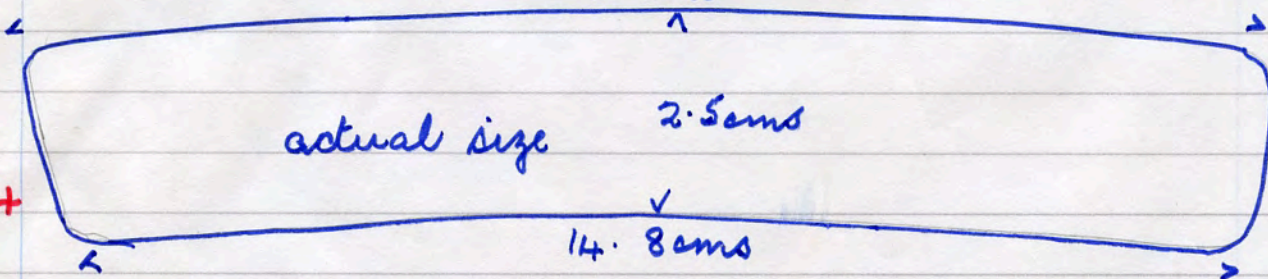 actual size 2.5cms
14.8cms